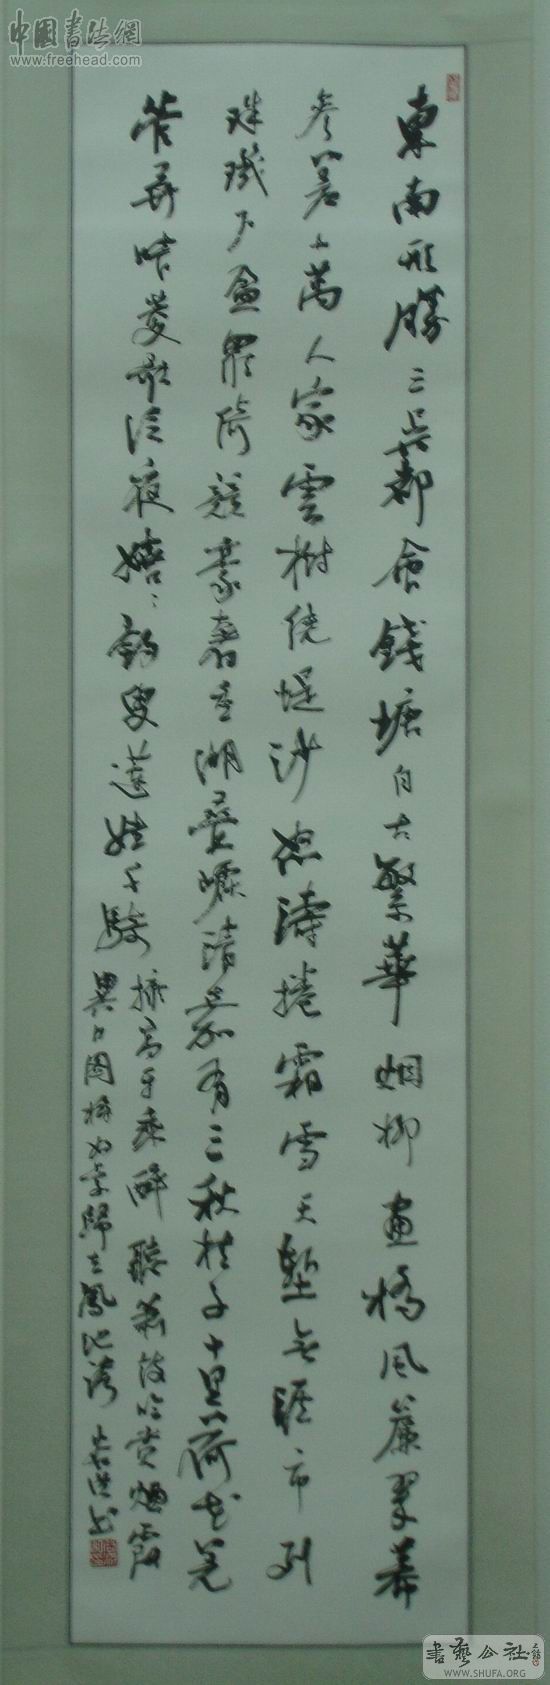 中國書法網
www.freehead.com
東南形勝三吳都會錢塘自古繁華烟柳畫橋風簾翠幕
參差十萬人家雲樹繞堤沙怒濤捲霜雪天塹無涯市列
珠璣戶盈羅綺競豪奢重湖疊巘清嘉有三秋桂子十里荷花羌
管弄晴菱歌泛夜嬉〻釣叟蓮娃千騎
擁高牙乘醉聽蕭鼓吟賞烟霞
異日圖將好景歸去鳳池誇 书
書藝公社
www.SHUFA.ORG